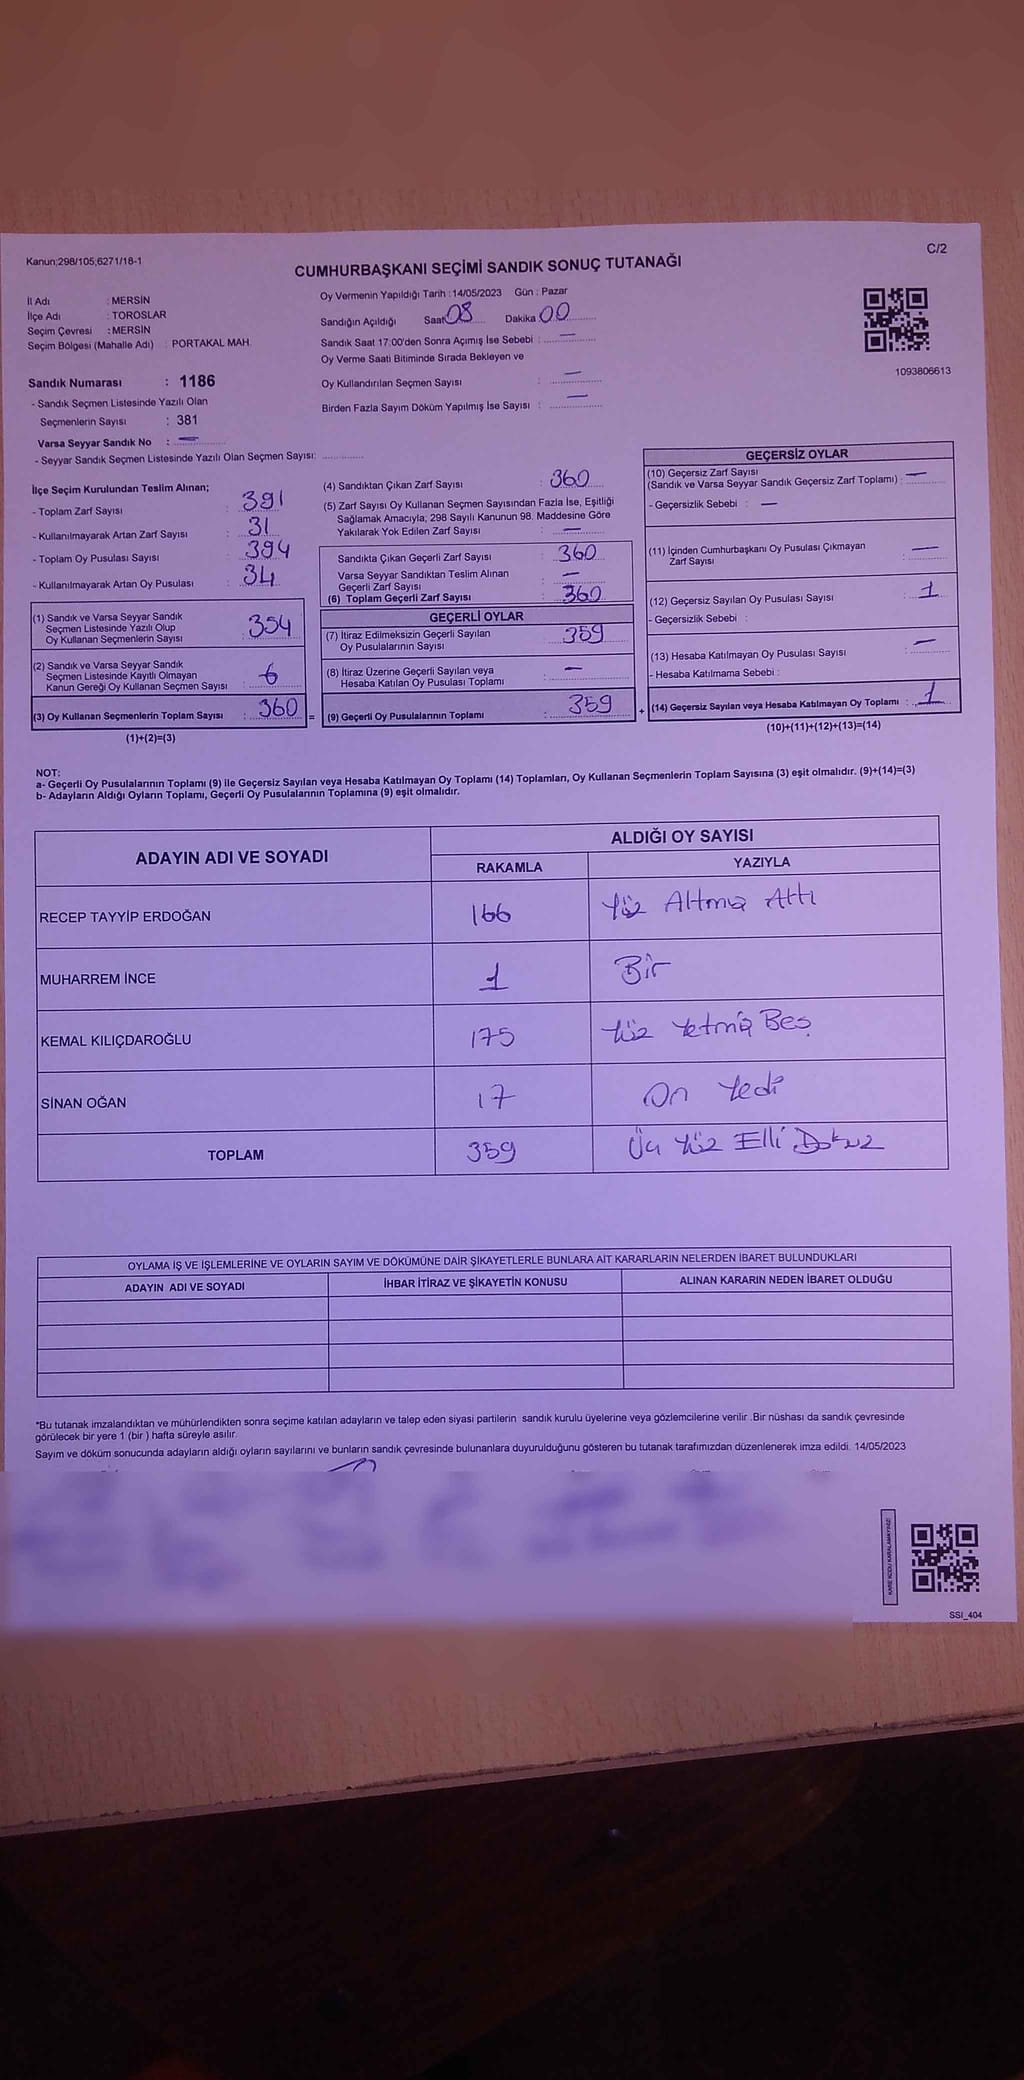 Kanun;298/105;6271/18-1
C/2
CUMHURBAŞKANI SEÇİMİ SANDIK SONUÇ TUTANAĞI
İl Adı : MERSİN
İlçe Adı : TOROSLAR
Seçim Çevresi : MERSİN
Seçim Bölgesi (Mahalle Adı) : PORTAKAL MAH.
Sandık Numarası : 1186
- Sandık Seçmen Listesinde Yazılı Olan
Seçmenlerin Sayısı : 381
Varsa Seyyar Sandık No : —
- Seyyar Sandık Seçmen Listesinde Yazılı Olan Seçmen Sayısı: ..............
Oy Vermenin Yapıldığı Tarih : 14/05/2023 Gün : Pazar
Sandığın Açıldığı Saat 08 Dakika 00
Sandık Saat 17:00'den Sonra Açımış İse Sebebi : —
Oy Verme Saati Bitiminde Sırada Bekleyen ve
Oy Kullandırılan Seçmen Sayısı : —
Birden Fazla Sayım Döküm Yapılmış İse Sayısı : —
1093806613
İlçe Seçim Kurulundan Teslim Alınan;
- Toplam Zarf Sayısı : 391
- Kullanılmayarak Artan Zarf Sayısı : 31
- Toplam Oy Pusulası Sayısı : 394
- Kullanılmayarak Artan Oy Pusulası : 34
(1) Sandık ve Varsa Seyyar Sandık
Seçmen Listesinde Yazılı Olup
Oy Kullanan Seçmenlerin Sayısı : 354
(2) Sandık ve Varsa Seyyar Sandık
Seçmen Listesinde Kayıtlı Olmayan
Kanun Gereği Oy Kullanan Seçmen Sayısı : 6
(3) Oy Kullanan Seçmenlerin Toplam Sayısı : 360
(1)+(2)=(3)
=
(4) Sandıktan Çıkan Zarf Sayısı : 360
(5) Zarf Sayısı Oy Kullanan Seçmen Sayısından Fazla İse, Eşitliği
Sağlamak Amacıyla, 298 Sayılı Kanunun 98. Maddesine Göre
Yakılarak Yok Edilen Zarf Sayısı : —
Sandıkta Çıkan Geçerli Zarf Sayısı : 360
Varsa Seyyar Sandıktan Teslim Alınan
Geçerli Zarf Sayısı : —
(6) Toplam Geçerli Zarf Sayısı : 360
GEÇERLİ OYLAR
(7) İtiraz Edilmeksizin Geçerli Sayılan
Oy Pusulalarının Sayısı : 359
(8) İtiraz Üzerine Geçerli Sayılan veya
Hesaba Katılan Oy Pusulası Toplamı : —
(9) Geçerli Oy Pusulalarının Toplamı : 359
+
GEÇERSİZ OYLAR
(10) Geçersiz Zarf Sayısı
(Sandık ve Varsa Seyyar Sandık Geçersiz Zarf Toplamı) : —
- Geçersizlik Sebebi : —
(11) İçinden Cumhurbaşkanı Oy Pusulası Çıkmayan
Zarf Sayısı : —
(12) Geçersiz Sayılan Oy Pusulası Sayısı : 1
- Geçersizlik Sebebi :
(13) Hesaba Katılmayan Oy Pusulası Sayısı : —
- Hesaba Katılmama Sebebi :
(14) Geçersiz Sayılan veya Hesaba Katılmayan Oy Toplamı : 1
(10)+(11)+(12)+(13)=(14)
NOT:
a- Geçerli Oy Pusulalarının Toplamı (9) ile Geçersiz Sayılan veya Hesaba Katılmayan Oy Toplamı (14) Toplamları, Oy Kullanan Seçmenlerin Toplam Sayısına (3) eşit olmalıdır. (9)+(14)=(3)
b- Adayların Aldığı Oyların Toplamı, Geçerli Oy Pusulalarının Toplamına (9) eşit olmalıdır.
ADAYIN ADI VE SOYADI
ALDIĞI OY SAYISI
RAKAMLA YAZIYLA
RECEP TAYYİP ERDOĞAN 166 Yüz Altmış Altı
MUHARREM İNCE 1 Bir
KEMAL KILIÇDAROĞLU 175 Yüz Yetmiş Beş
SİNAN OĞAN 17 On Yedi
TOPLAM 359 Üç Yüz Elli Dokuz
OYLAMA İŞ VE İŞLEMLERİNE VE OYLARIN SAYIM VE DÖKÜMÜNE DAİR ŞİKAYETLERLE BUNLARA AİT KARARLARIN NELERDEN İBARET BULUNDUKLARI
ADAYIN ADI VE SOYADI İHBAR İTİRAZ VE ŞİKAYETİN KONUSU ALINAN KARARIN NEDEN İBARET OLDUĞU
*Bu tutanak imzalandıktan ve mühürlendikten sonra seçime katılan adayların ve talep eden siyasi partilerin sandık kurulu üyelerine veya gözlemcilerine verilir .Bir nüshası da sandık çevresinde
görülecek bir yere 1 (bir ) hafta süreyle asılır.
Sayım ve döküm sonucunda adayların aldığı oyların sayılarını ve bunların sandık çevresinde bulunanlara duyurulduğunu gösteren bu tutanak tarafımızdan düzenlenerek imza edildi. 14/05/2023
KARE KODU KARALAMAYINIZ!
SSI_404